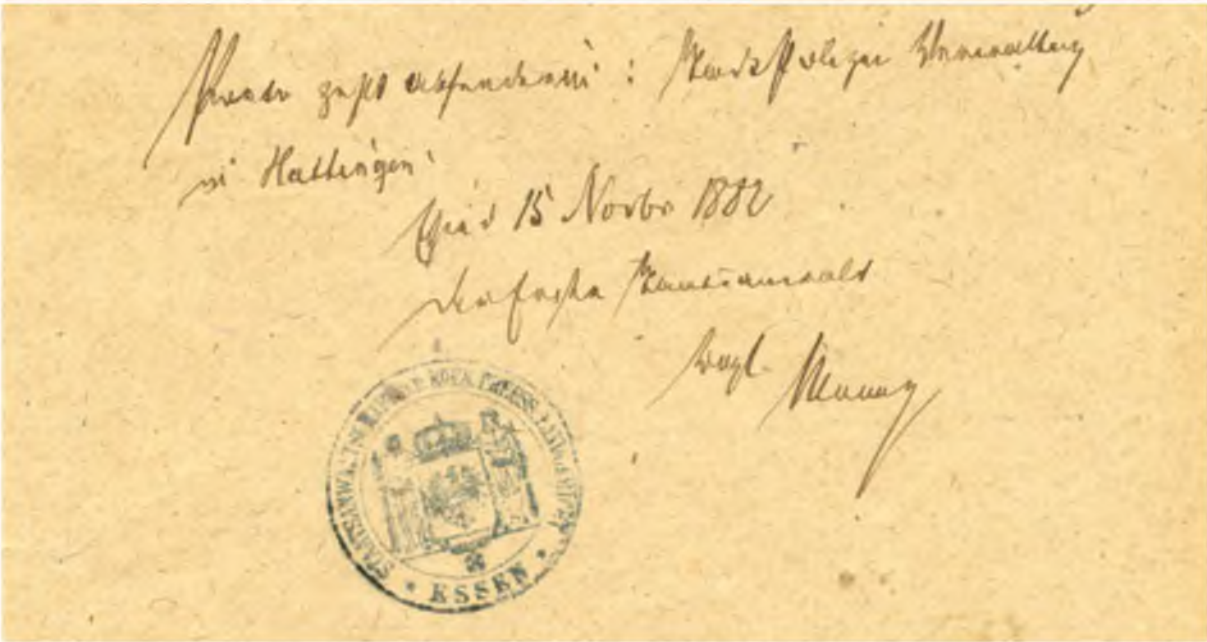 Porto zahlt Absenderin: Stadt Polizei Verwaltung
in Hattingen
15 Novbr 1882
der Erste Staatsanwalt
STAATSANWALTSCHAFT KÖN. PREUSS. LANDGERICHT
* ESSEN *